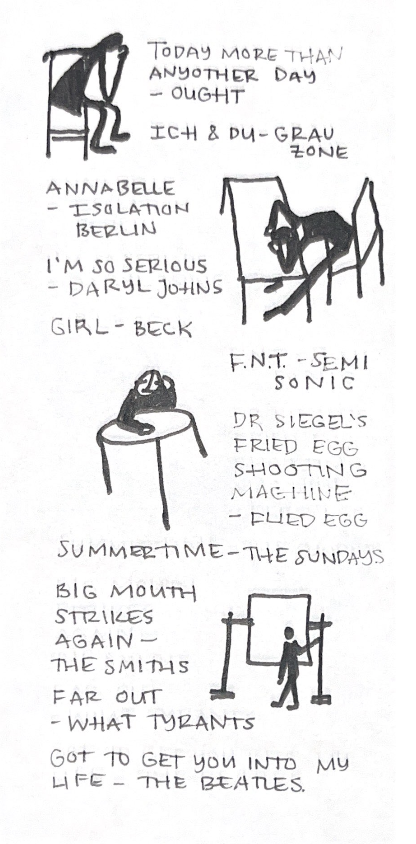 TODAY MORE THAN
ANYOTHER DAY
- OUGHT
ICH & DU - GRAU
ZONE
ANNABELLE
- ISOLATION
BERLIN
I'M SO SERIOUS
- DARYL JOHNS
GIRL - BECK
F.N.T. - SEMI
SONIC
DR SIEGEL'S
FRIED EGG
SHOOTING
MACHINE
- FLIED EGG
SUMMERTIME - THE SUNDAYS
BIG MOUTH
STRIKES
AGAIN -
THE SMITHS
FAR OUT
- WHAT TYRANTS
GOT TO GET YOU INTO MY
LIFE - THE BEATLES.